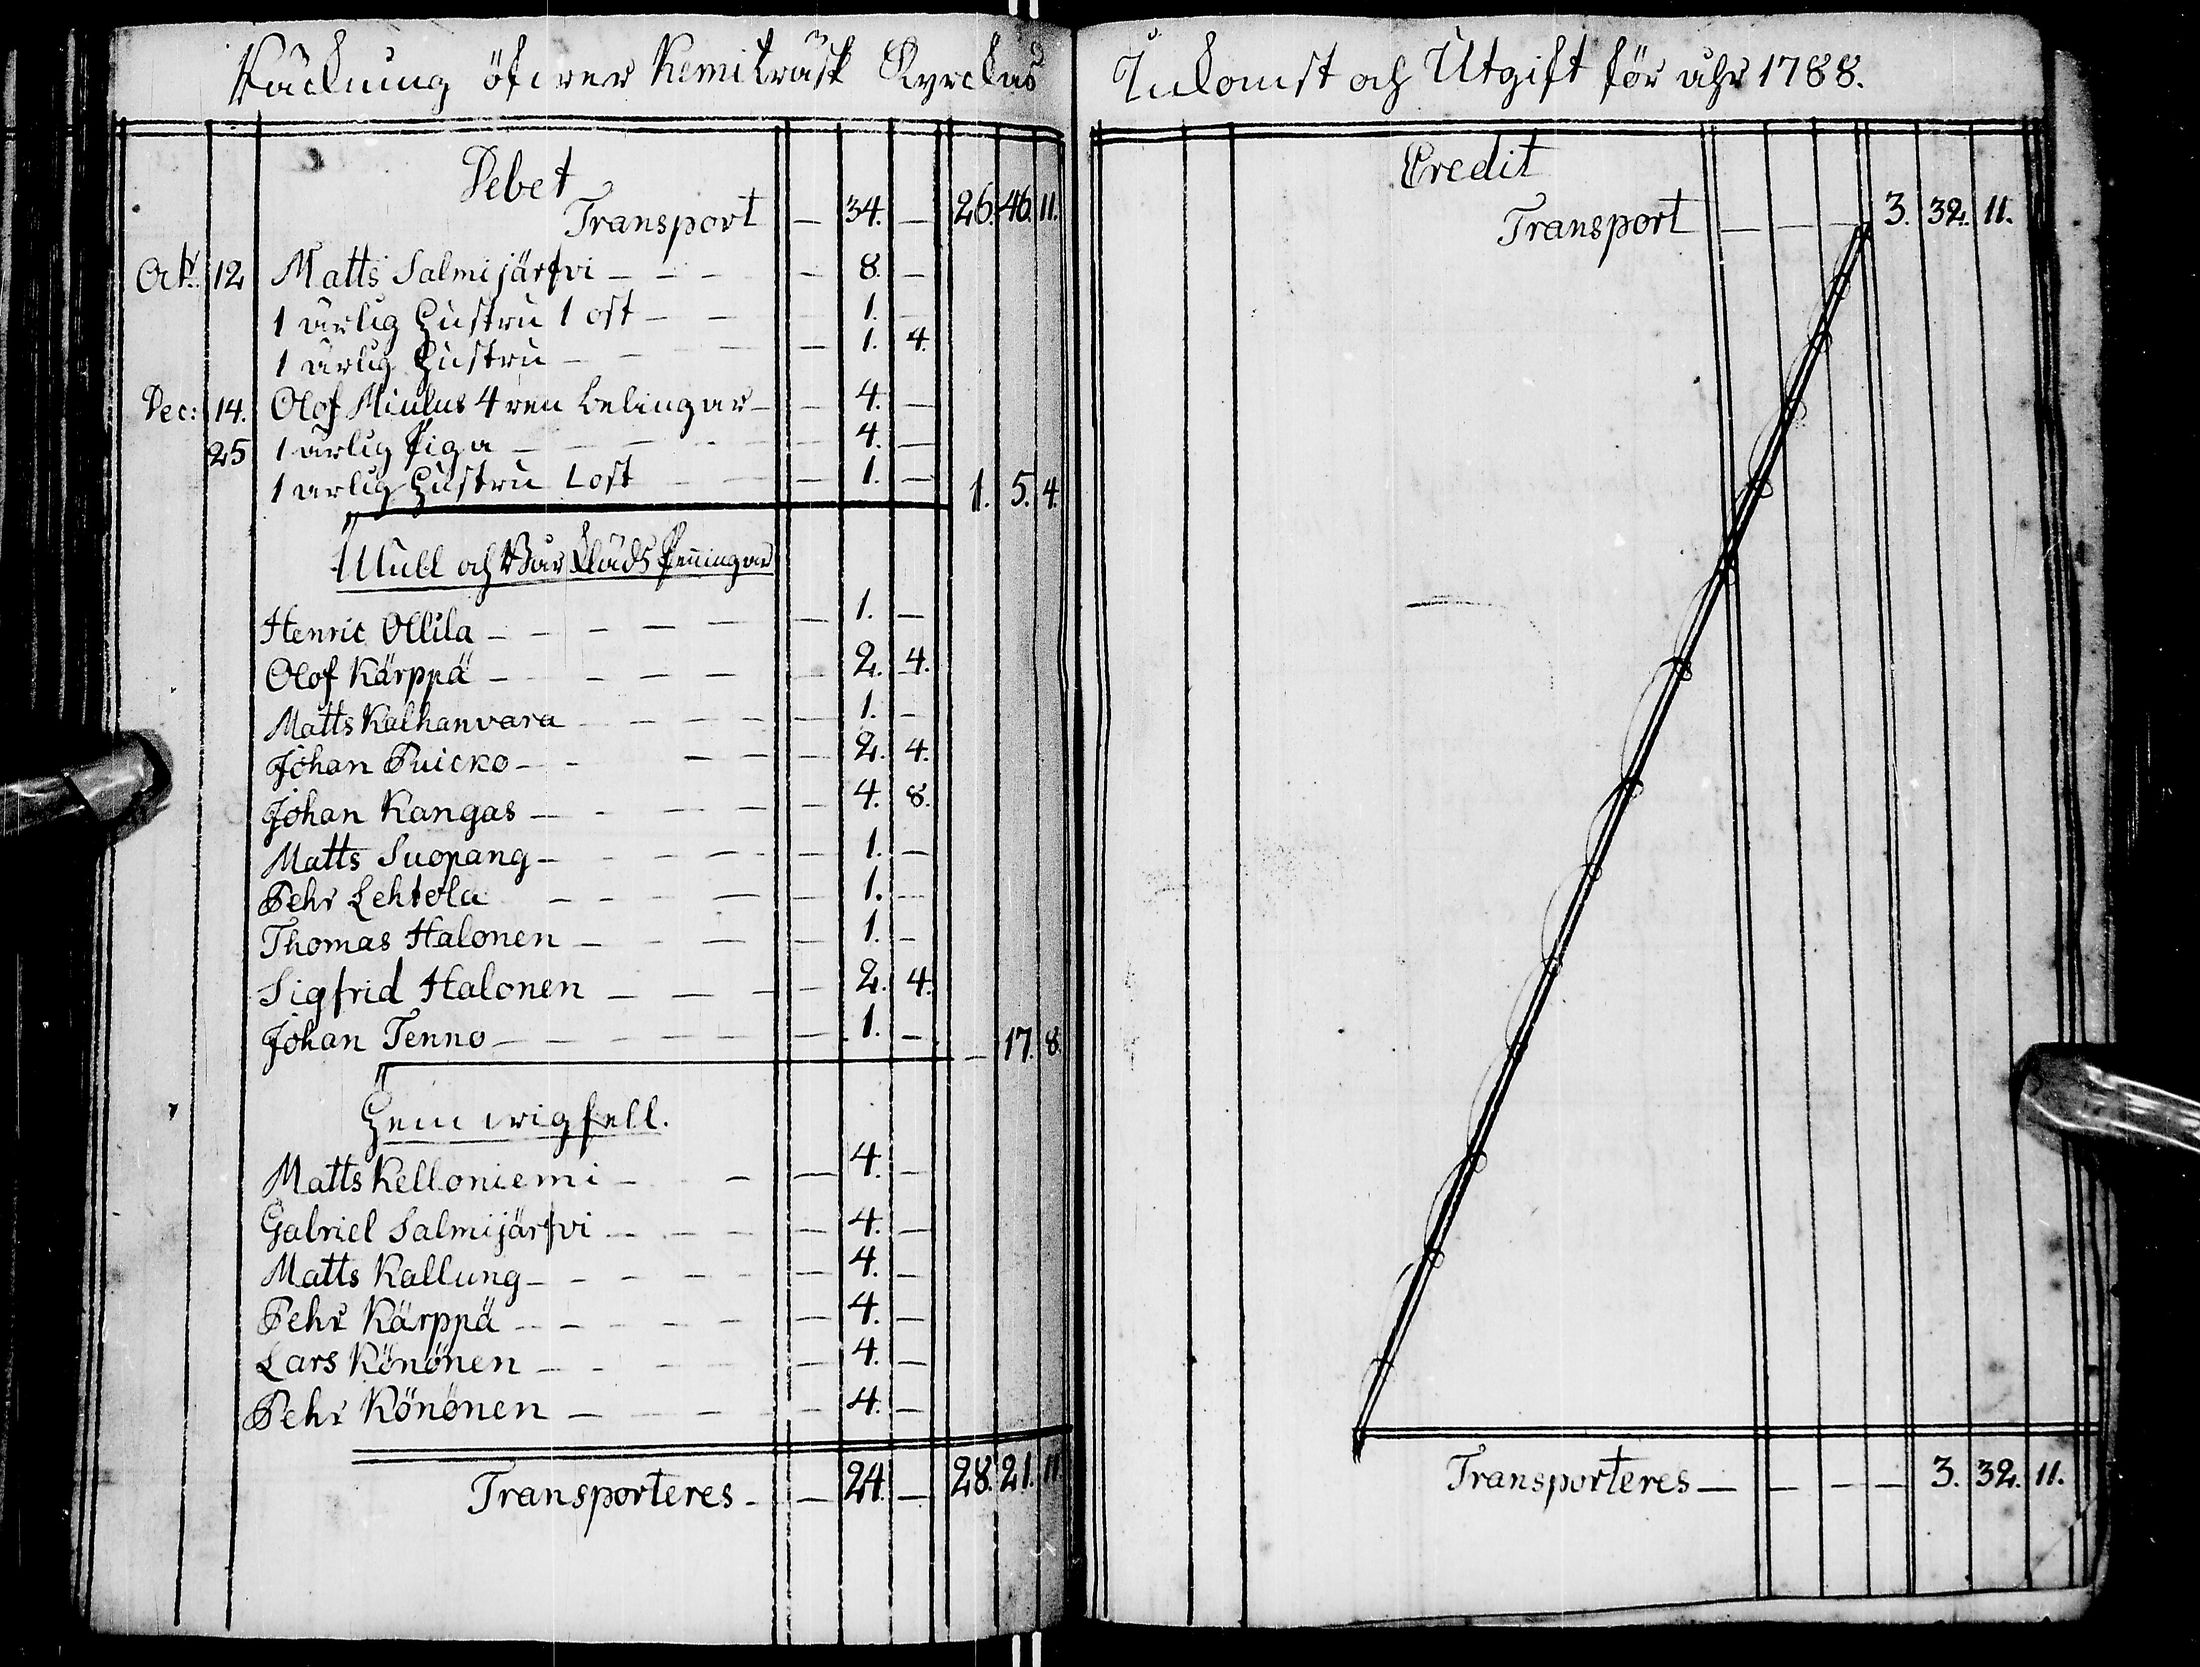 Räckning öfwer Kemiträsk Kyrckas
Debet
Transport — 34. — 26. 46. 11.
Oct: 12 Matts Salmijärfvi — 8. —
1 ärlig Hustru 1 ost — 1. —
1 ärlig Hustru — 1. 4.
Dec: 14. Olof 4 ren belingar — 4. —
25 1 ärlig Piga — 4. —
1 ärlig Hustru 1 ost — 1. — 1. 5. 4.
Wull och Bår Kläds Penningar
Henric Ollila — 1. —
Olof Kärppä — 2. 4.
Matts Kalhanvara — 1. —
Johan Puicko — 2. 4.
Johan Kangas — 4. 8.
Matts Suopang — 1. —
Pehr Lehtola — 1. —
Thomas Halonen — 1. —
Sigfrid Halonen — 2. 4.
Johan Tenno — 1. — — 17. 8.
Hem wigsell.
Matts Kelloniemi — 4. —
Gabriel Salmijärfvi — 4. —
Matts Kallung — 4. —
Pehr Kärppä — 4. —
Lars Könönen — 4. —
Pehr Könönen — 4. —
Transporteres — 24. — 28. 21. 11
Inkomst och Utgift för åhr 1788.
Credit
Transport — — — 3. 32. 11.
Transporteres — — — — 3. 32. 11.